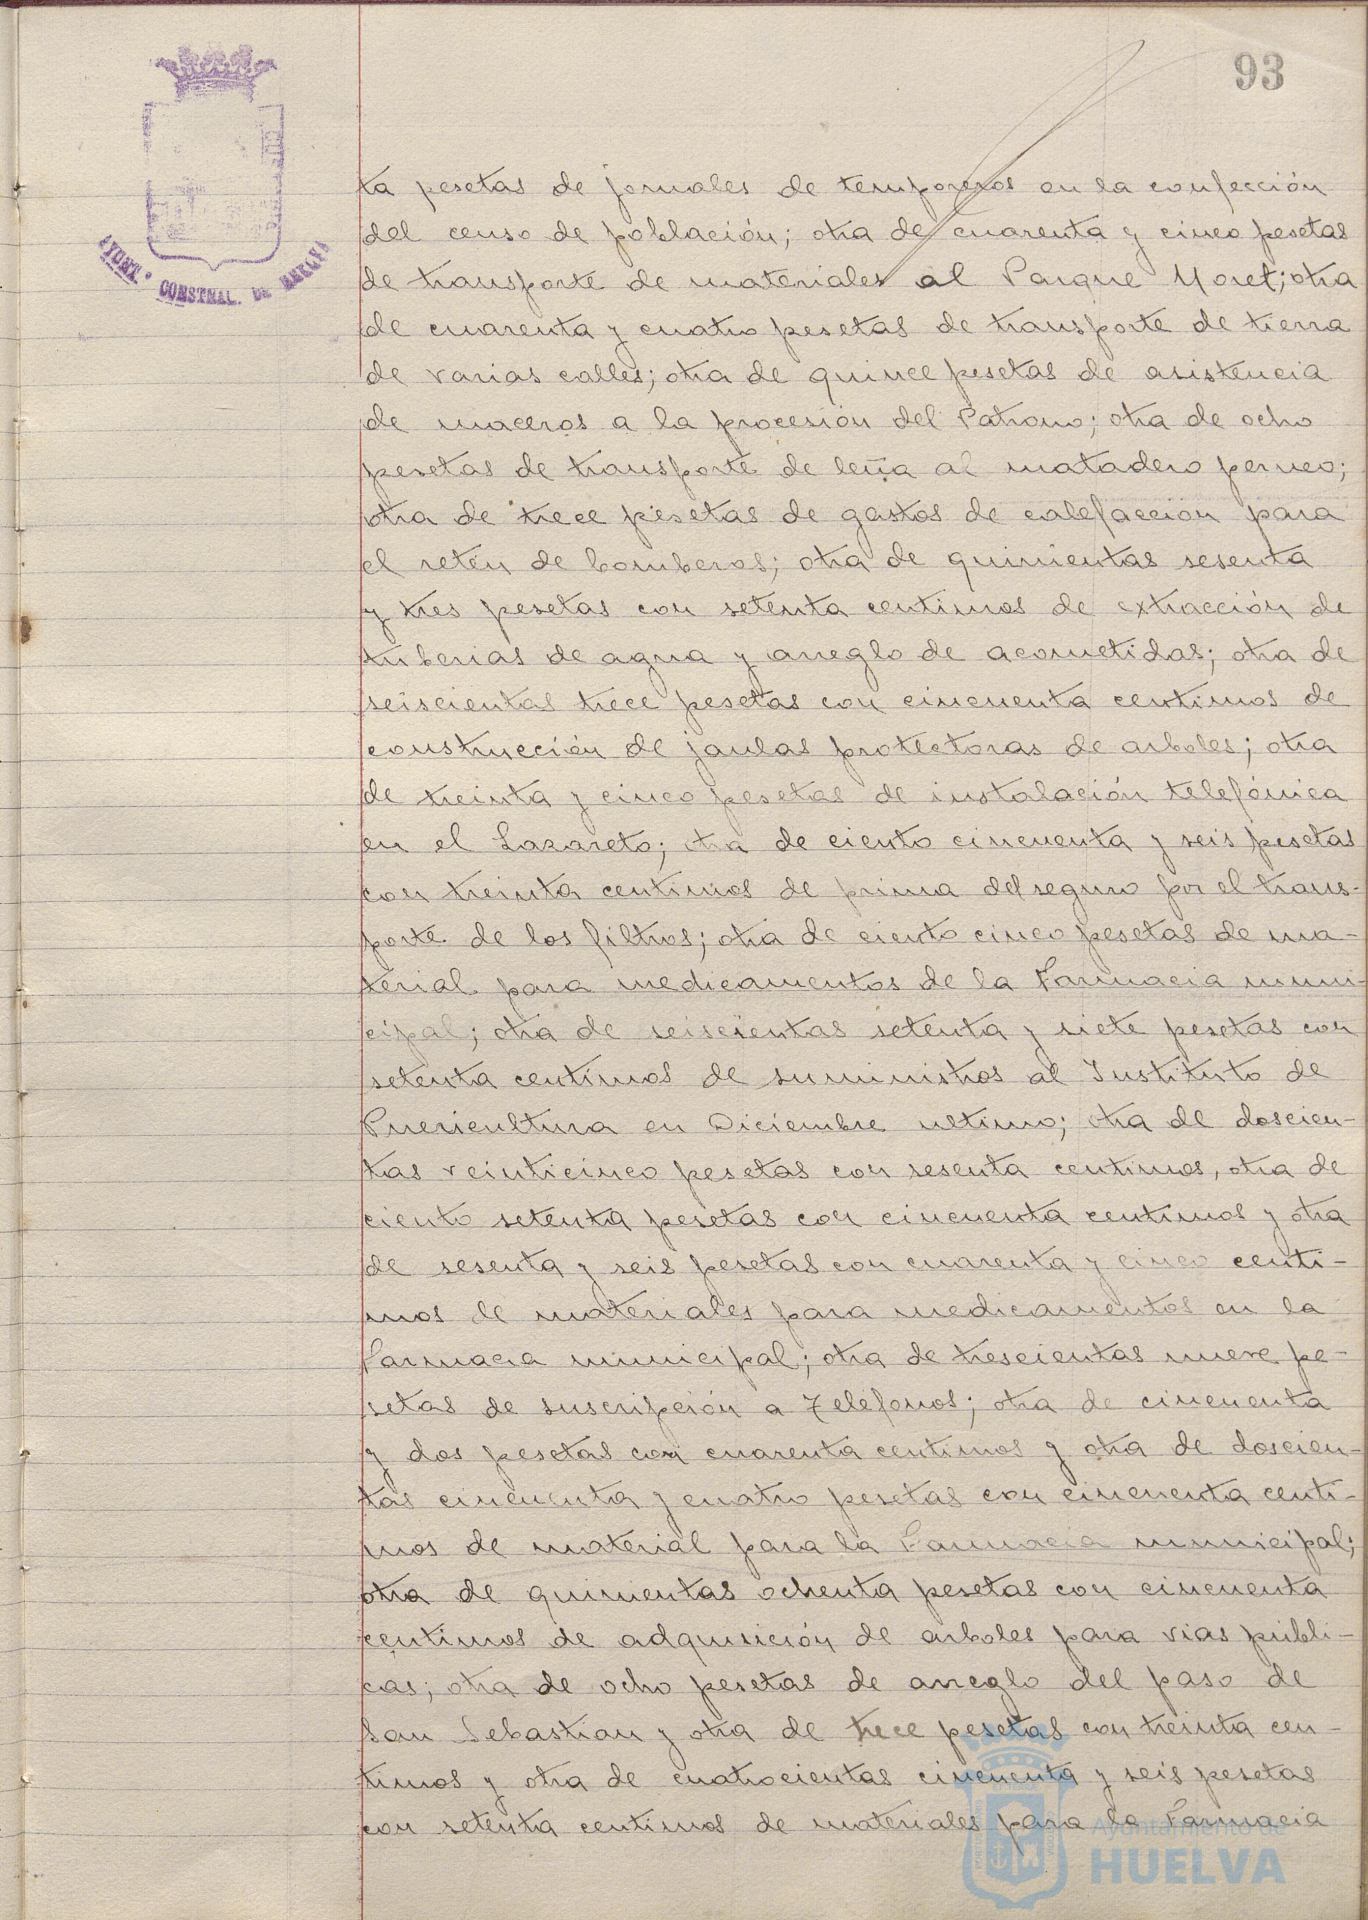 93
AYUNT.º CONSTNAL. DE HUELVA
ta pesetas de jornales de temporeros en la confección
del censo de población; otra de cuarenta y cinco pesetas
de transporte de materiales al Parque Moret; otra
de cuarenta y cuatro pesetas de transporte de tierra
de varias calles; otra de quince pesetas de asistencia
de maceros a la procesión del Patrono; otra de ocho
pesetas de transporte de leña al matadero perneo;
otra de trece pesetas de gastos de calefacción para
el retén de bomberos; otra de quinientas sesenta
y tres pesetas con setenta centimos de extracción de
tuberias de agua y arreglo de acometidas; otra de
seiscientas trece pesetas con cincuenta centimos de
construcción de jaulas protectoras de arboles; otra
de treinta y cinco pesetas de instalación telefónica
en el Lazareto; otra de ciento cincuenta y seis pesetas
con treinta centimos de prima del seguro por el trans-
porte de los filtros; otra de ciento cinco pesetas de ma-
terial para medicamentos de la Farmacia muni-
cipal; otra de seiscientas setenta y siete pesetas con
setenta centimos de suministros al Instituto de
Puericultura en Diciembre ultimo; otra de doscien-
tas veinticinco pesetas con sesenta centimos, otra de
ciento setenta pesetas con cincuenta centimos y otra
de sesenta y seis pesetas con cuarenta y cinco centi-
mos de materiales para medicamentos en la
Farmacia municipal; otra de trescientas nueve pe-
setas de suscripción a Teléfonos; otra de cincuenta
y dos pesetas con cuarenta centimos y otra de doscien-
tas cincuenta y cuatro pesetas con cincuenta centi-
mos de material para la Farmacia municipal;
otra de quinientas ochenta pesetas con cincuenta
centimos de adquisición de arboles para vias publi-
cas; otra de ocho pesetas de arreglo del paso de
San Sebastian y otra de trece pesetas con treinta cen-
timos y otra de cuatrocientas cincuenta y seis pesetas
con setenta centimos de materiales para la Farmacia
Ayuntamiento de
HUELVA